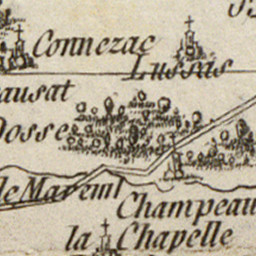 Connezac
Lussas
ausat
Dosse
de Mareuil
Champeau
la Chapelle